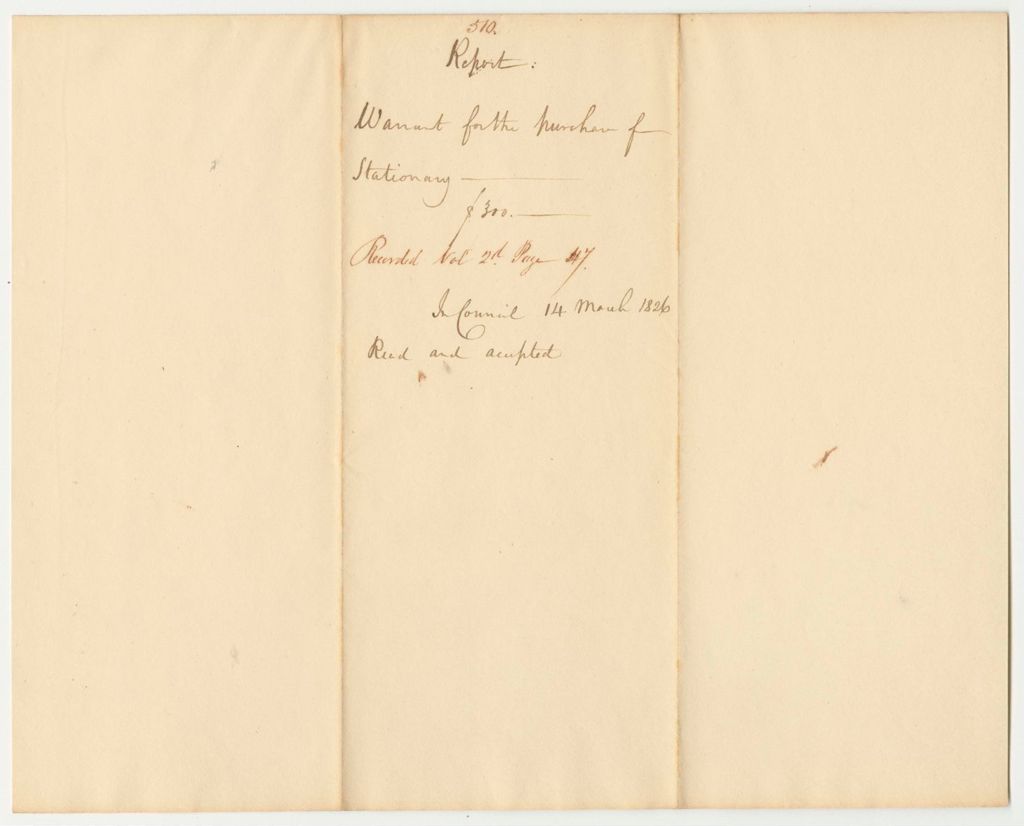 510.
Report:
Warrant for the purchase of
Stationary
$300.
Recorded Vol 2d. Page 47.
In Council 14 March 1826
Read and accepted